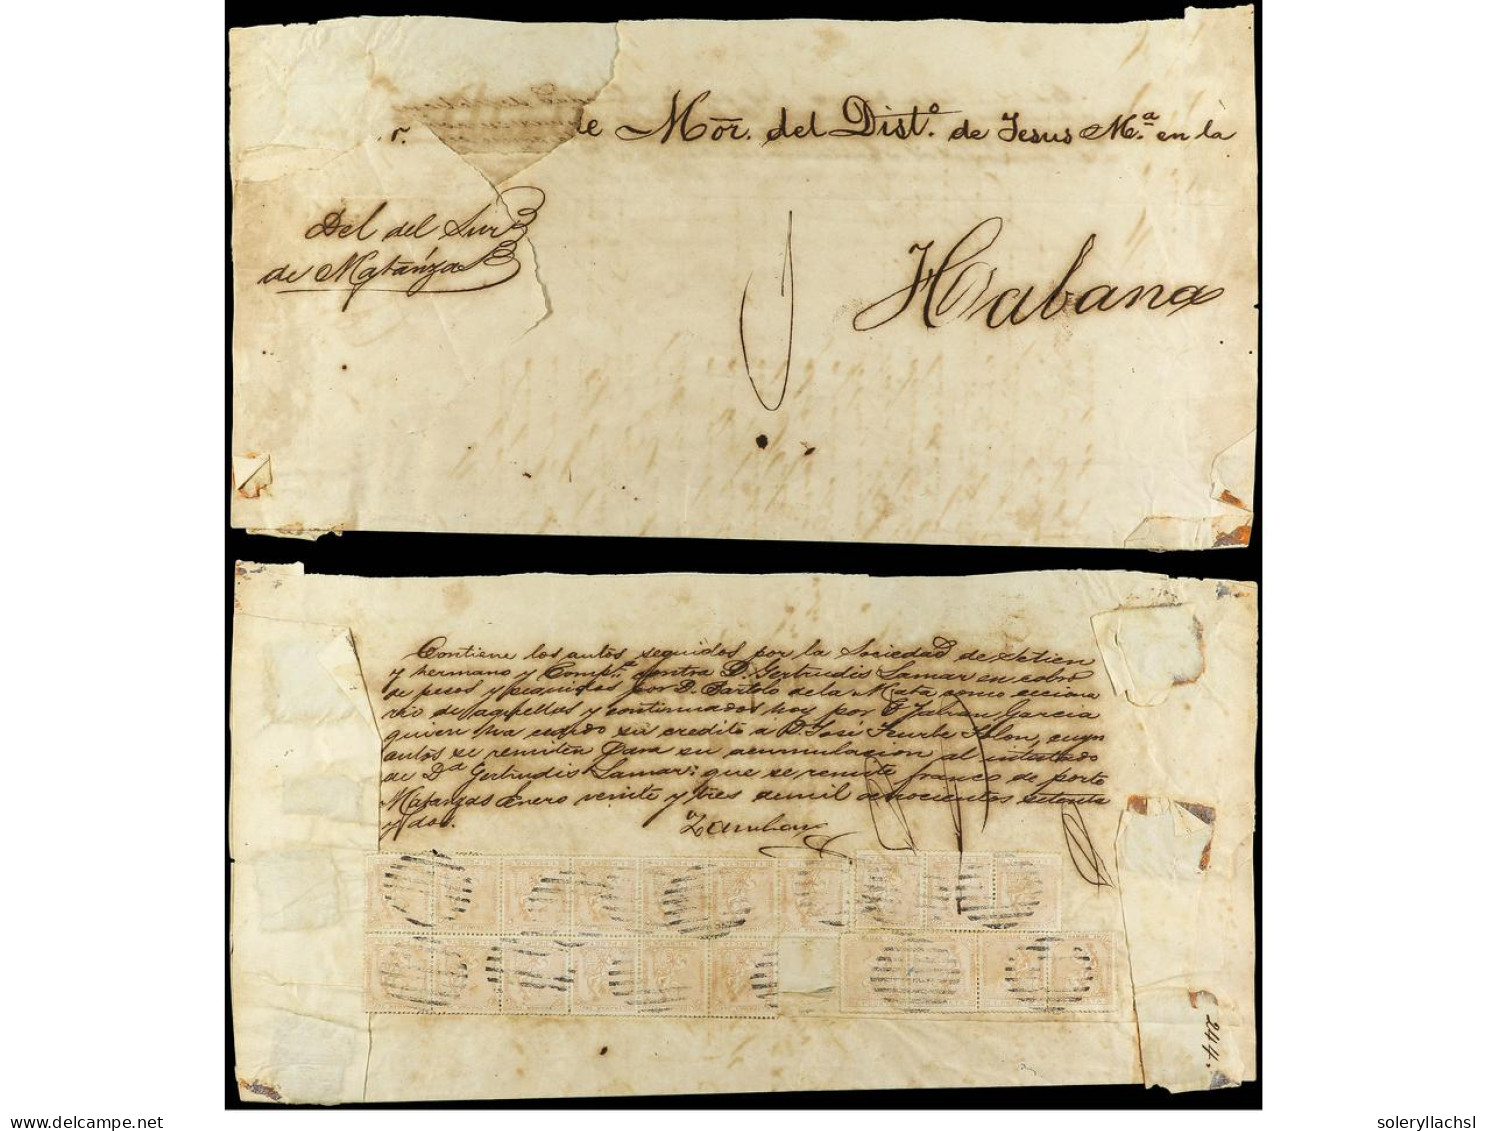 r. de Mor. del Dist.º de Jesus M.ª en la
Del del Sur
de Matánzas
Habana
Contiene los autos seguidos por la Sociedad de Setien
y hermano y Comp.ª contra D. Gertrudis Lamar en cobro
de pesos y seguidos por D. Bartolo de la Mata como cesiona
rio de aquellos y continuados hoy por D. Julian Garcia
quien ha cedido su credito á D. José Iturbe Solon, cuyos
autos se remiten para su acumulacion al intestado
de Dª Gertrudis Lamar: que se remite franco de porte
Matanzas Enero veinte y tres de mil ochocientos setenta
y dos.
244.
delcampe.net
soleryllachsl